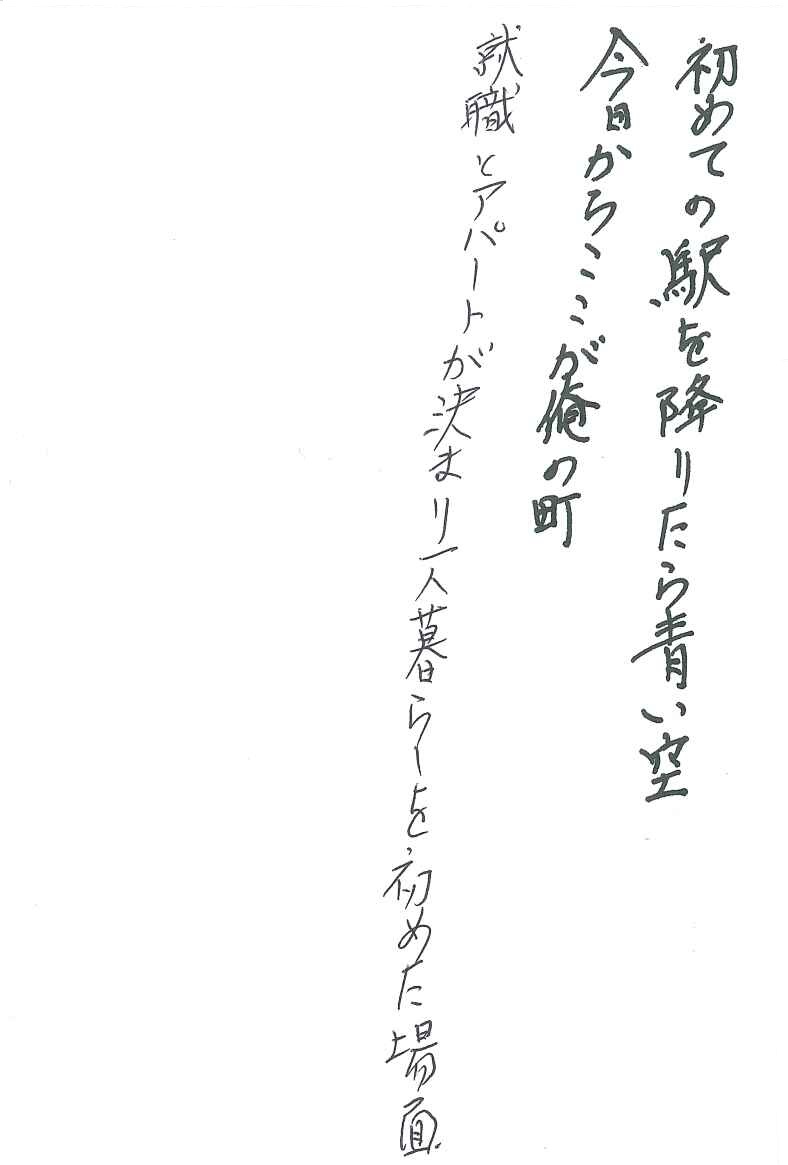 初めての駅を降りたら青い空
今日からここが俺の町
就職とアパートが決まり一人暮らしを初めた場面